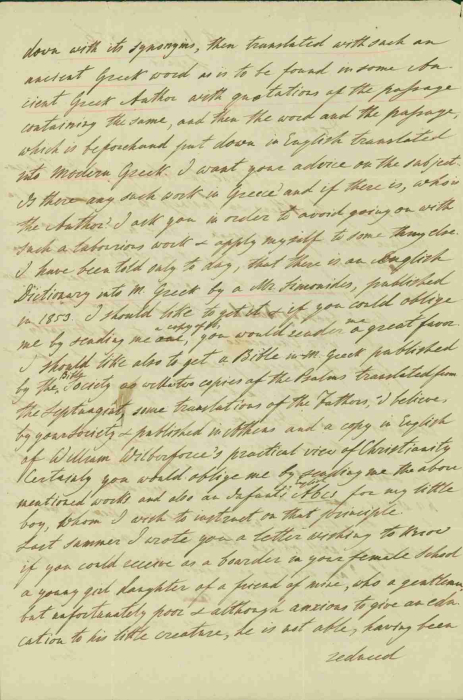 down with its synonyms, then translated with such an
ancient Greek word as is to be found in some An
cient Greek Author with quotations of the passage
containing the same, and then the word and the passage,
which is beforehand put down in English translated
into Modern Greek. I want your advice on the subject.
Is there any such work in Greece and if there is, who is
the Author? I ask you in order to avoid going on with
such a laborious work & apply myself to some thing else.
I have been told only to day, that there is an English
Dictionary into M. Greek by a Mr Simonides, published
in 1853. I should like to get it & if you could oblige
me by sending me a copy of it, you would render me a great favor
I should like also to get a Bible in M. Greek published
by the Bible Society as well as two copies of the Psalms translated from
the Septuagint, some translations of the Fathers, I believe,
by your Society & published in Athens and a copy in English
of William Wilberforce's practical view of Christianity
Certainly you would oblige me by sending me the above
mentioned works and also an Infant's ABC, for my little
boy, whom I wish to instruct on that principle.
Last summer I wrote you a letter wishing to know
if you could receive as a boarder in your female School
a young girl daughter of a friend of mine, who a gentleman,
but unfortunately poor & although anxious to give an edu
cation to his little creature, he is not able, having been
reduced